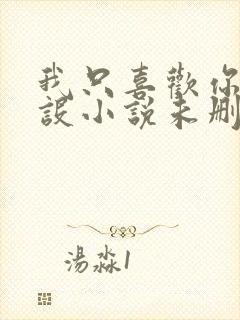 我只喜歡你
設小說未刪
湯淼1